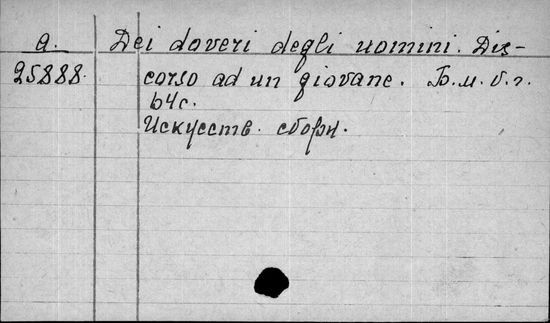 a. Dei doveri degli uomini. Dis-
25888. corso ad un giovane. Б.м.б.г.
64с.
Искусств. сборн.